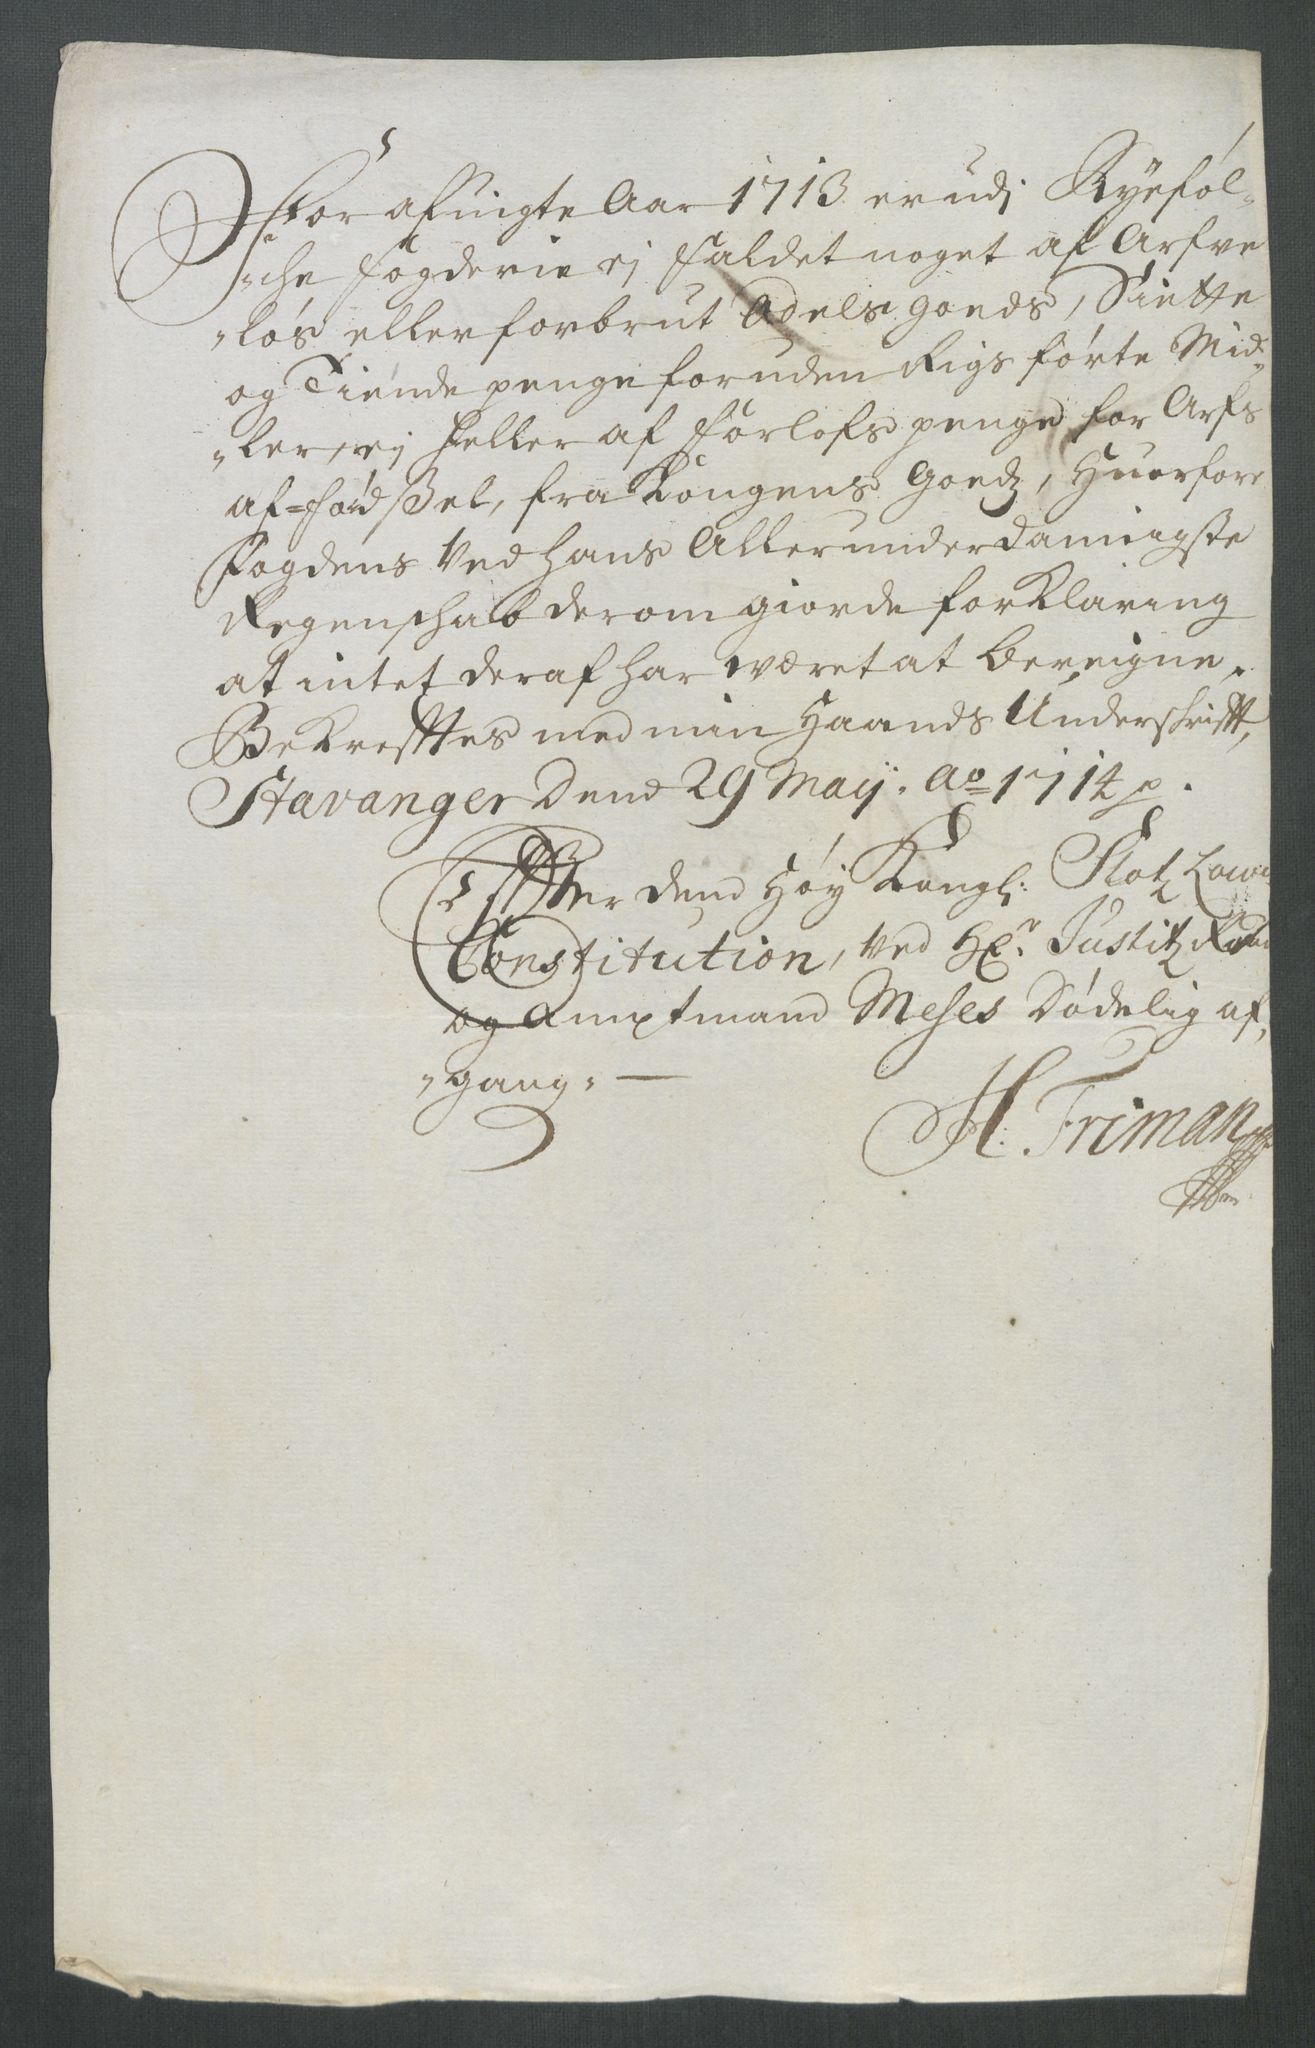 For afvigte Aar 1713 er udj Ryeføl-
"che fogderie ej faldet noget af Arfve
"løs eller forbrut Adels goeds, Siette
og Tiende penge for uden Rigs førte Mid-
"ler, ej heller af Forlofs penge for Arfs
af-Fødßel, fra Kongens Goedz, Huorfore
Fogdens ved hans Allerunderdanigste
Regenskab derom giorde forKlaring
at intet deraf har wæret at bereigne,
BeKrefftes med min Haands Underschrifft,
Stavanger Dend 29 Maij. Ao 1714 p.
Effter dend Høy Kongl: Slotz Lows
Constitution, ved Hr. Justitz Raad
og Amptmand Meses Dødelig af,
"gang,
H. Friman